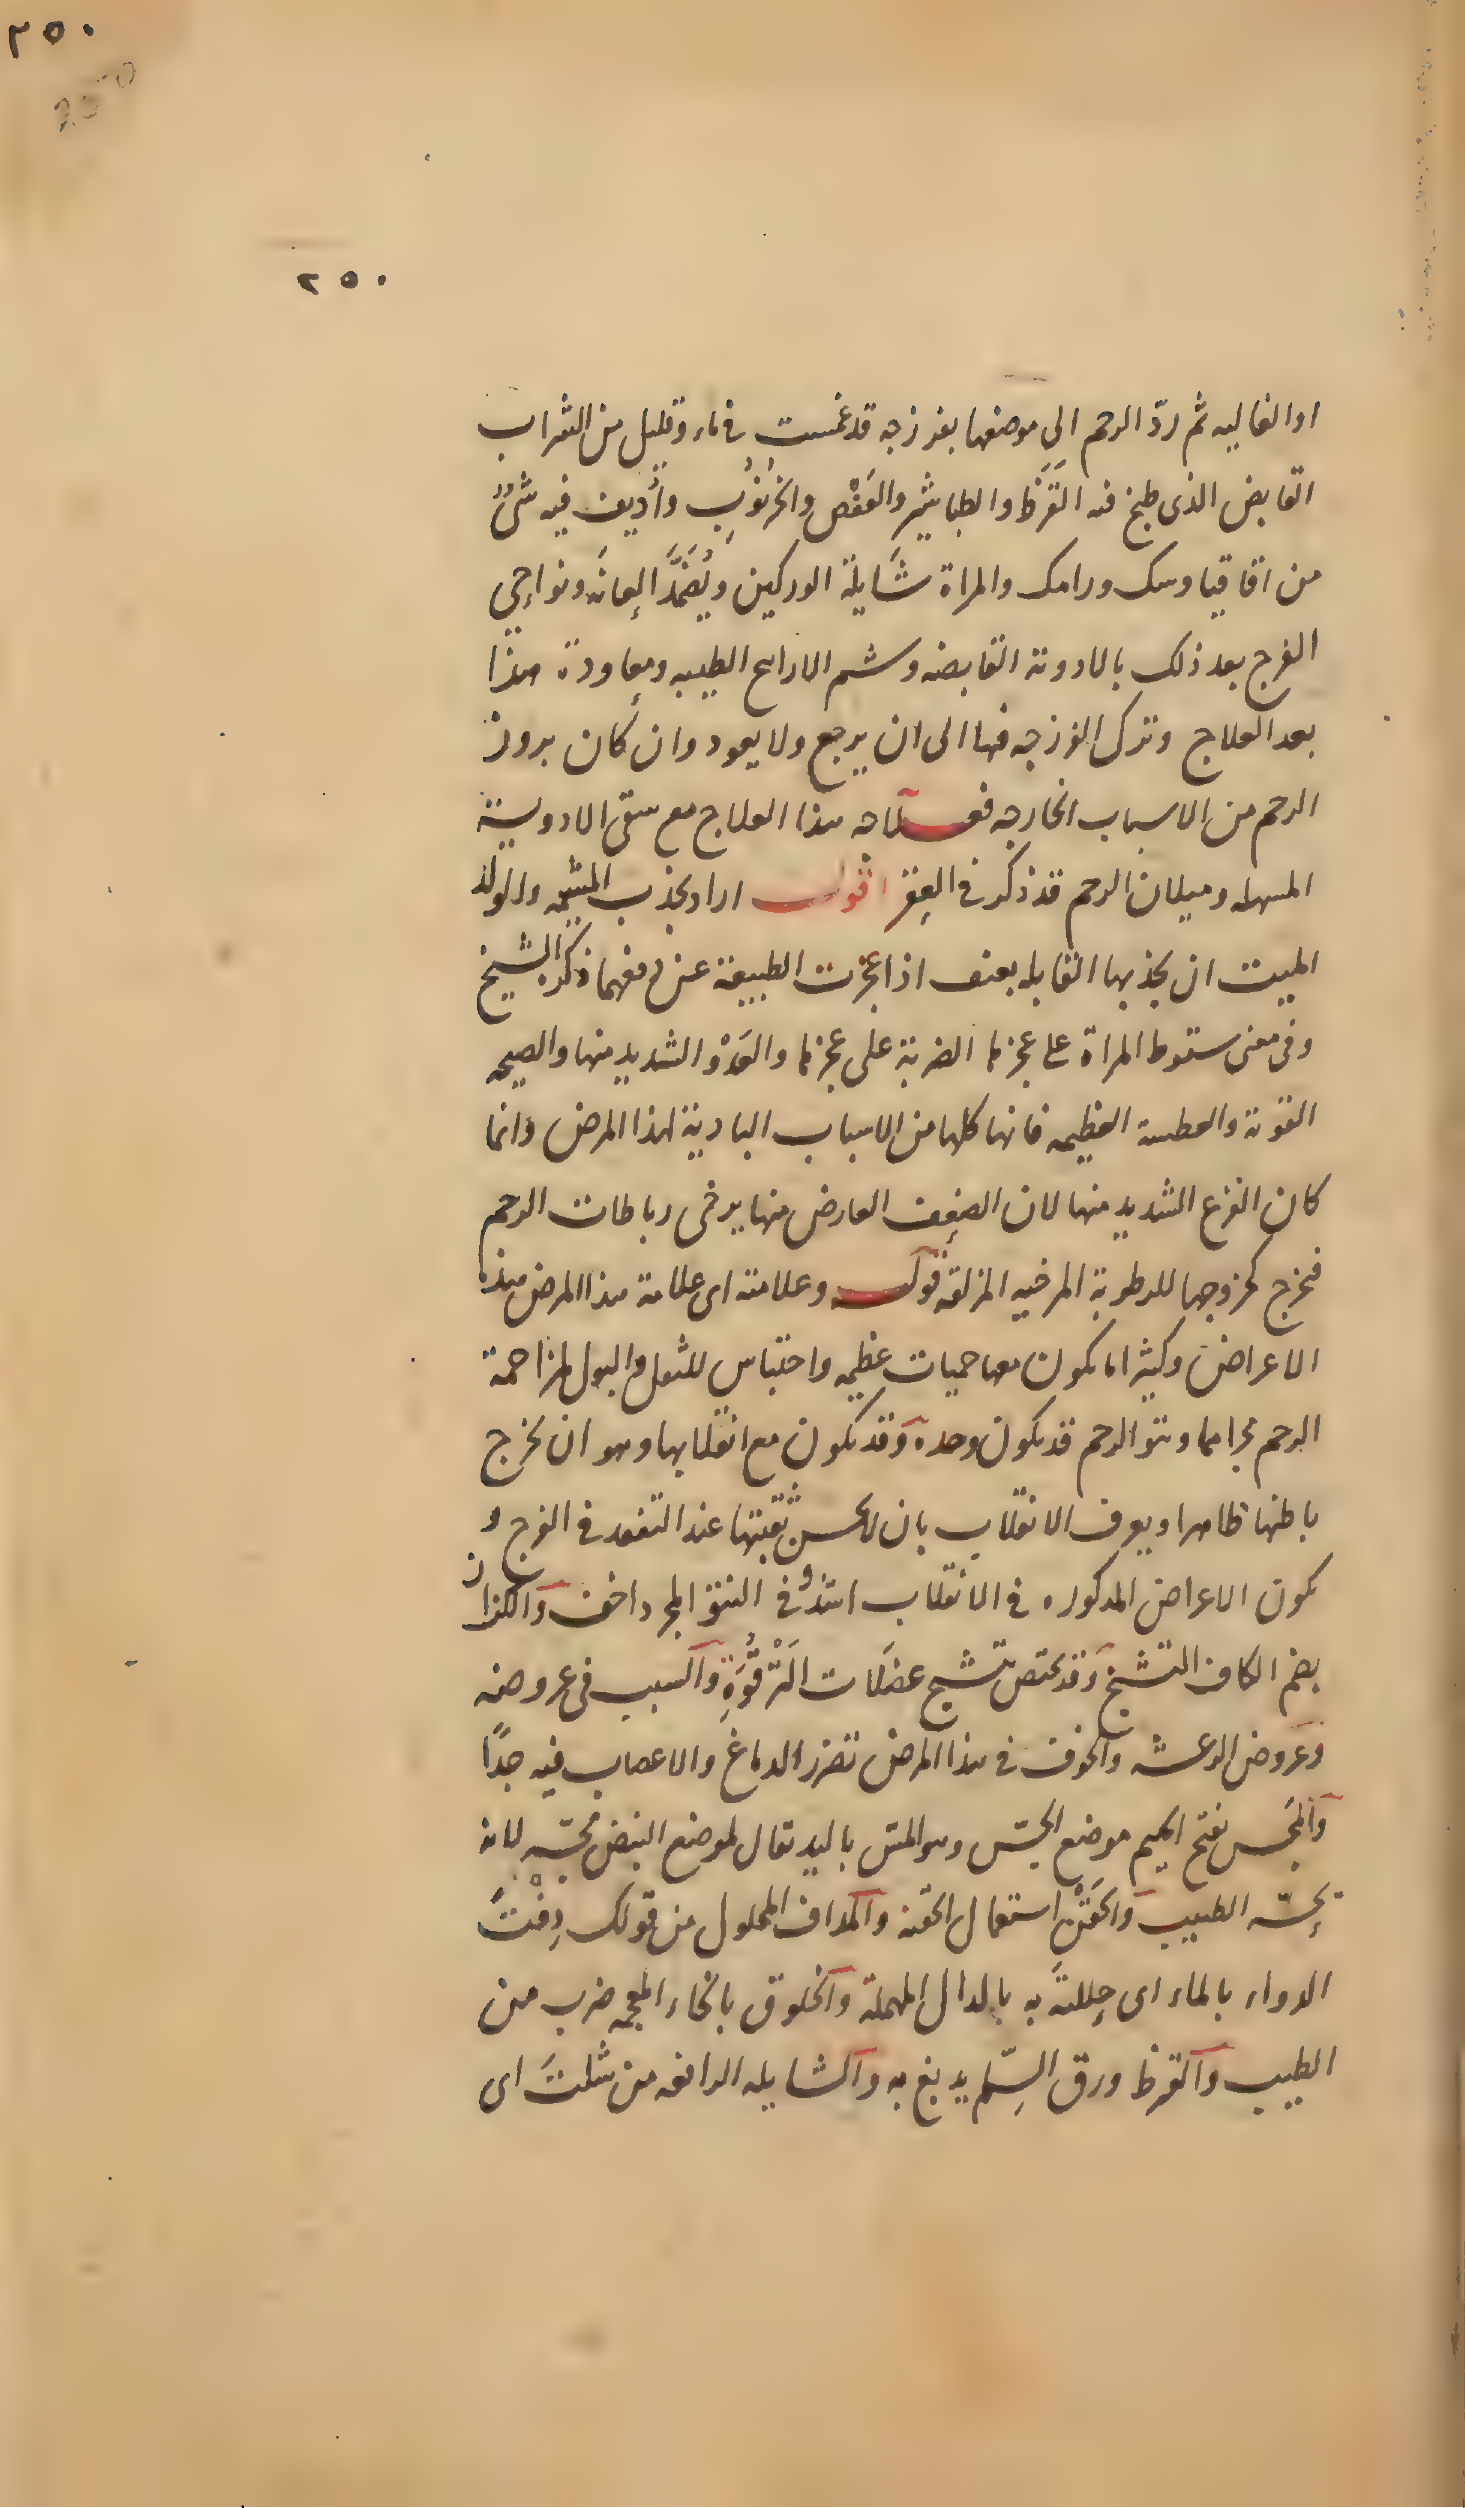 ٢٥٠
250
٢٥٠
او الغاليه ثم ردّ الرحم الى موضعها بفرزجه قد غمست فى ماء وقليل من الشراب
القابض الذى طبخ فيه القَرَظ والطباشير والعَفْص والخُرنُوبِ واُدِيف فيه شىٌ
من اقاقيا وسك ورامك والمراة شَايِلة الوركين ويُضَمَّدَ العانَه ونواحِى
الفرج بعد ذلك بالادوية القابضه وشم الارايح الطيبه ومعاودة هذا
بعد العلاج وتترك الفرزجه فيها الى ان يرجع ولا يعود وان كان بروز
الرحم من الاسباب الخارجه فعلاجه هذا العلاج مع سقى الادوية
المسهله وميلان الرحم قد ذكر فى العقر اقول اراد بجذب المشيمه والولد
الميت ان يجذبها القابله بعنف اذا عجزت الطبيعة عن دفعهما ذكره الشيخ
وفى معنى سقوط المراة على عجزها الضربة على عجزها والعَدْو الشديد منها والصيحه
القوية والعطسة العظيمه فانها كلها من الاسباب البادية لهذا المرض وانما
كان الفزع الشديد منها لان الضعف العارض منها يرخى رباطات الرحم
فتخرج كخروجها للرطوبة المرخيه المزلقه قوله وعلامته اى علامة هذا المرض هذه
الاعراض وكثيرا ما يكون معها حميات عظيمه واحتباس للثفل والبول لمزاحمة
الرحم مجراهما ونتو الرحم قد يكون وحده وقد يكون مع انقلابها وهو ان يخرج
باطنها ظاهرا ويعرف الانقلاب بان لا يحس ثقبتها عند التفقد فى الفرج و
يكون الاعراض المذكوره فى الانقلاب اشد وفى النتو المجرد اخف والكزاز
بضم الكاف التشنج وقد يختص بتشنج عضَلات التَرْقُوَةِ والسبب فى عروضه
وعروض الرعشه والخوف فى هذا المرض تضرر الدماغ والاعصاب فيه جدًا
والمَجَس بفتح الميم موضع الجسّ وهو المسّ باليد يقال لموضع النبض مَجَسّه لانه
يَجسّه الطبيب والحَقْن استعمال الحقنه والمداف المحلول من قولك دِفْتُ
الدواء بالماء اى حللتَه به بالدال المهملة والخلوق بالخاء المعجمه ضرب من
الطيب والقرظ ورق السّلم يدبغ به والشايله الرافعه من شلتَ اى